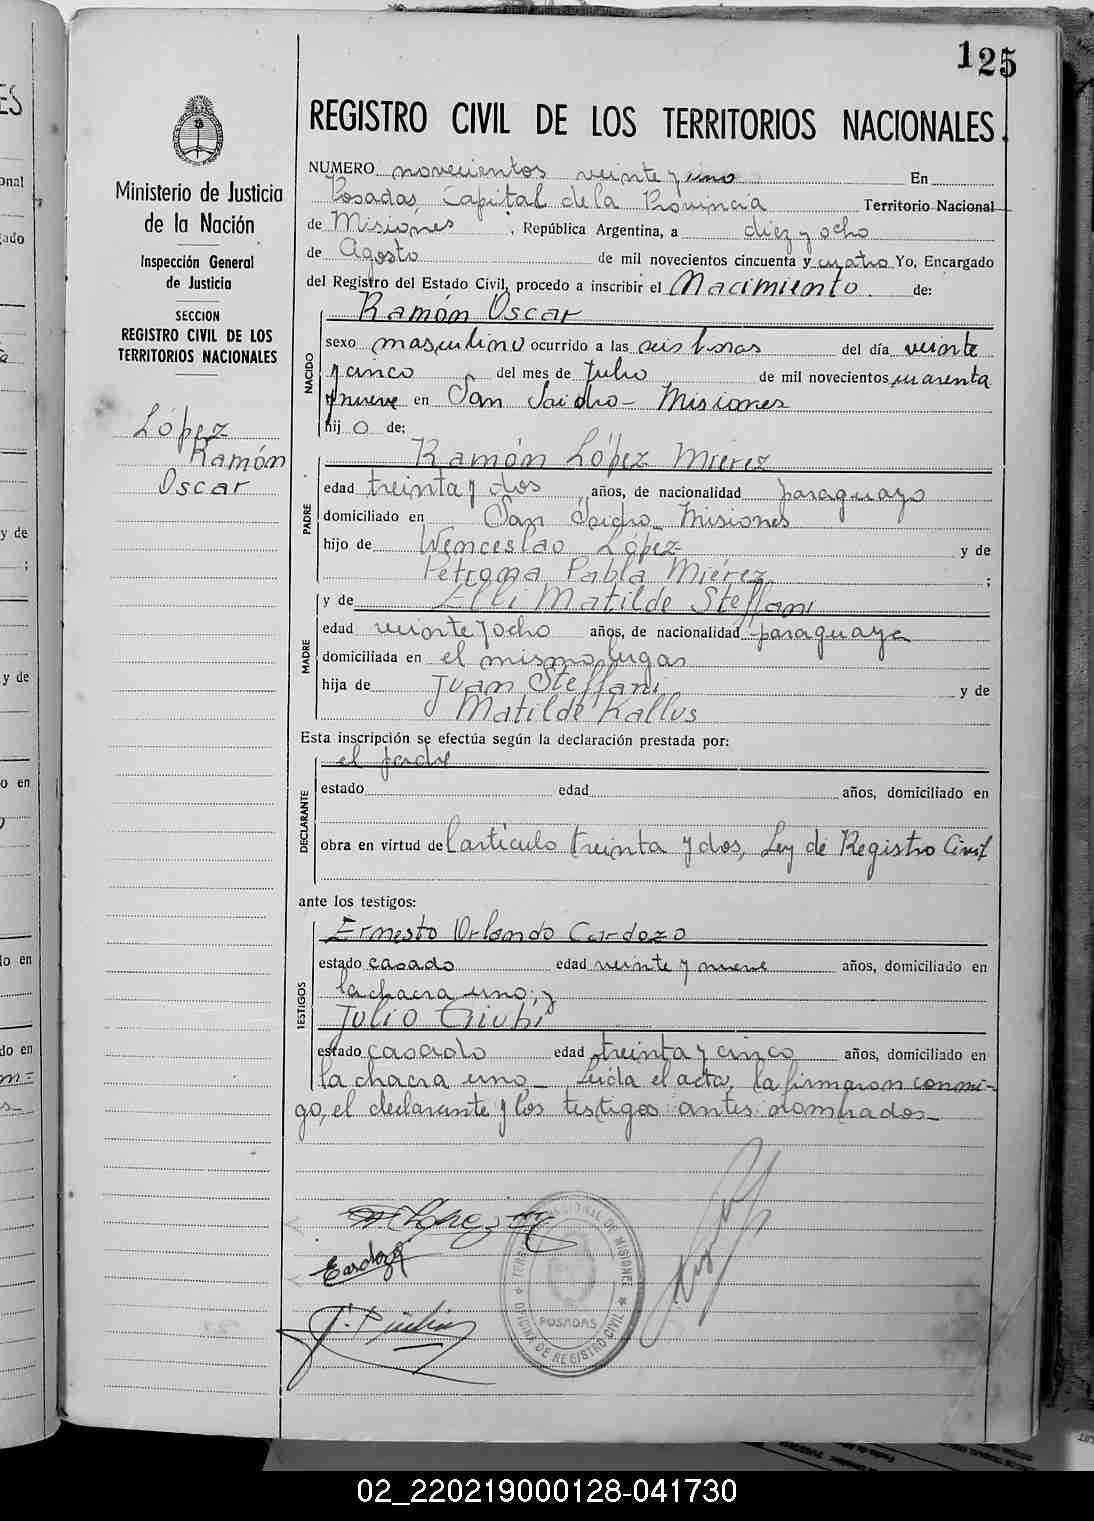 125
REGISTRO CIVIL DE LOS TERRITORIOS NACIONALES
Ministerio de Justicia
de la Nación
Inspección General
de Justicia
SECCION
REGISTRO CIVIL DE LOS
TERRITORIOS NACIONALES
López
Ramón
Oscar
NUMERO novecientos veinte y uno En
Posadas, Capital de la Provincia Territorio Nacional
de Misiones, República Argentina, a diez y ocho
de Agosto de mil novecientos cincuenta y cuatro Yo, Encargado
del Registro del Estado Civil, procedo a inscribir el Nacimiento de:
NACIDO
Ramón Oscar
sexo masculino ocurrido a las seis horas del día veinte
y cinco del mes de Julio de mil novecientos cuarenta
y nueve en San Isidro - Misiones
hijo de:
PADRE
Ramón López Mierez
edad treinta y dos años, de nacionalidad paraguayo
domiciliado en San Isidro - Misiones
hijo de Wenceslao López y de
Petrona Pabla Miérez ;
MADRE
y de Elli Matilde Steffani
edad veinte y ocho años, de nacionalidad paraguaya
domiciliada en el mismo lugar
hija de Juan Steffani y de
Matilde Kallus
Esta inscripción se efectúa según la declaración prestada por:
DECLARANTE
el padre
estado edad años, domiciliado en
obra en virtud del artículo treinta y dos, Ley de Registro Civil
ante los testigos:
TESTIGOS
Ernesto Orlando Cardozo
estado casado edad veinte y nueve años, domiciliado en
la chacra uno; y
Julio
estado casado edad treinta y cinco años, domiciliado en
la chacra uno - Leída el acta, la firmaron conmi-
go, el declarante y los testigos antes nombrados -
López
Cardozo
POSADAS
OFICINA DE REGISTRO CIVIL
02_220219000128-041730